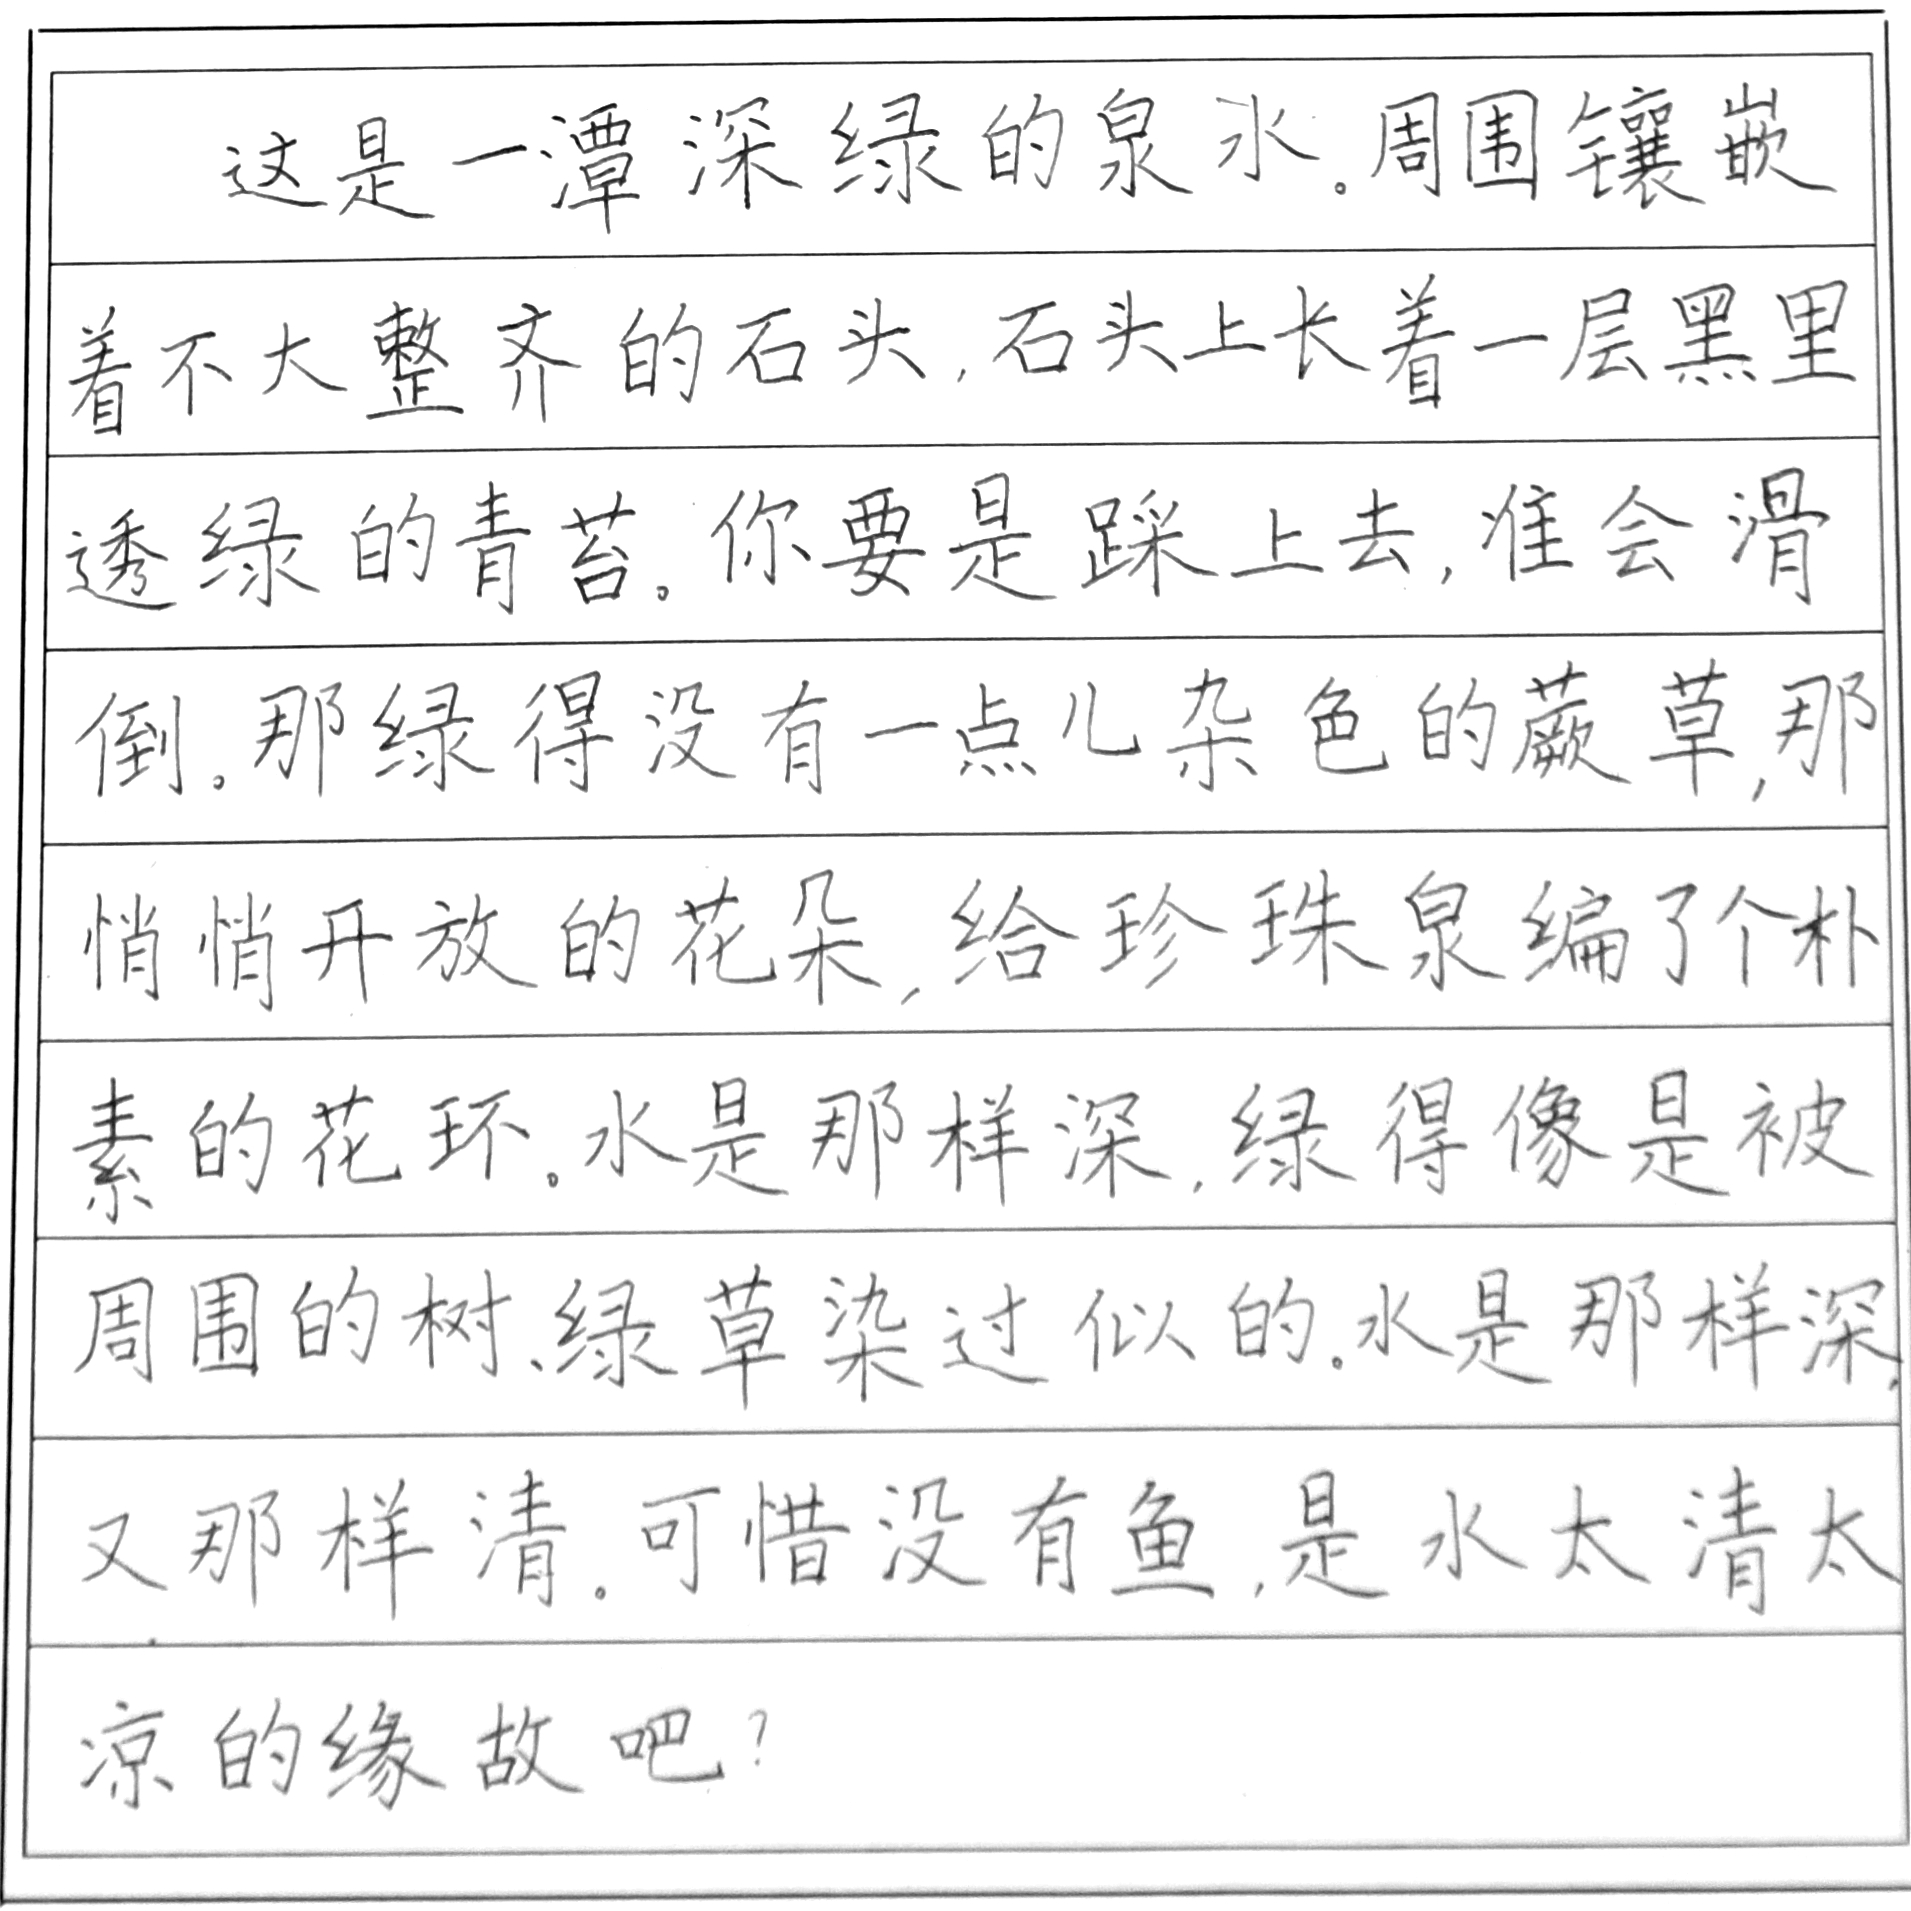 这是一潭深绿的泉水。周围镶嵌
着不大整齐的石头,石头上长着一层黑里
透绿的青苔。你要是踩上去,准会滑
倒。那绿得没有一点儿杂色的蕨草,那
悄悄开放的花朵,给珍珠泉编了个朴
素的花环。水是那样深,绿得像是被
周围的树、绿草染过似的。水是那样深,
又那样清。可惜没有鱼,是水太清太
凉的缘故吧?